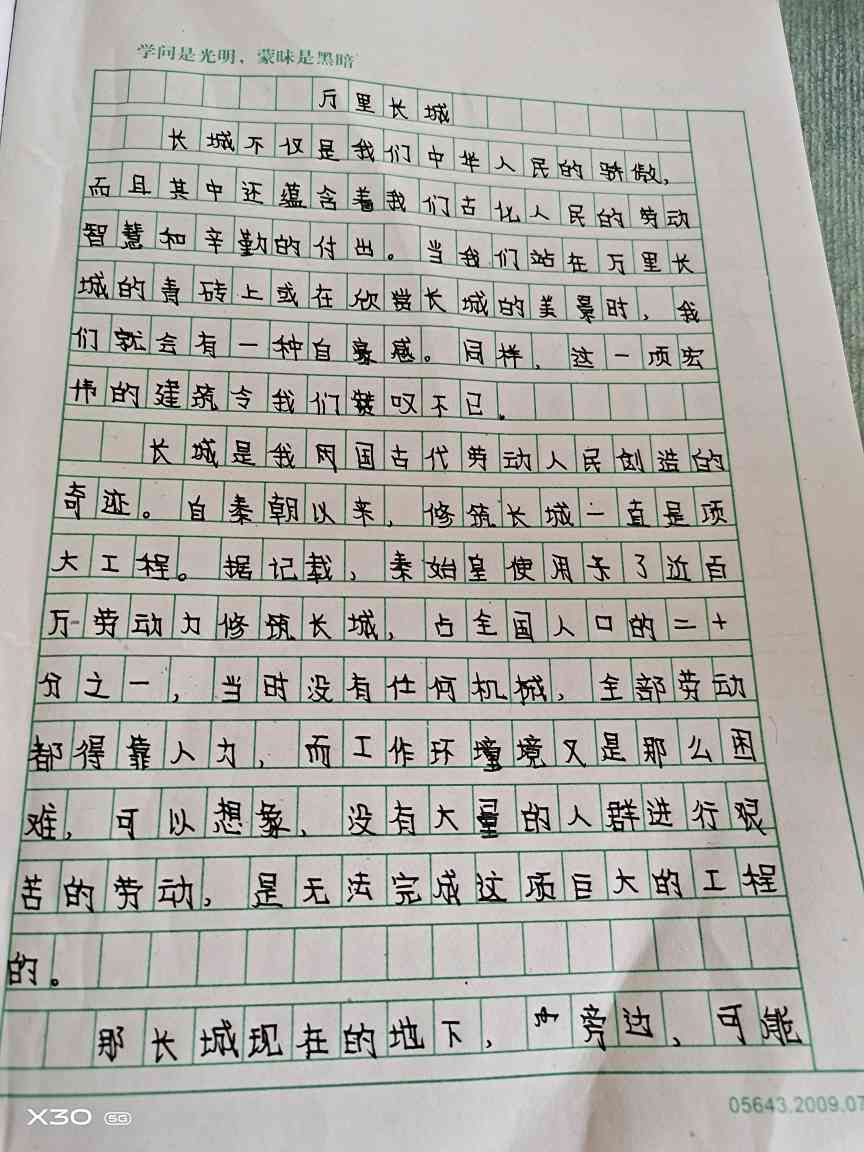 学问是光明，蒙昧是黑暗
万里长城
长城不仅是我们中华人民的骄傲，
而且其中还蕴含着我们古化人民的劳动
智慧和辛勤的付出。当我们站在万里长
城的青砖上或在欣赏长城的美景时，我
们就会有一种自豪感。同样，这一项宏
伟的建筑令我们赞叹不已。
长城是我网国古代劳动人民创造的
奇迹。自秦朝以来，修筑长城一直是项
大工程。据记载，秦始皇使用了近百
万劳动力修筑长城，占全国人口的二十
分之一，当时没有任何机械，全部劳动
都得靠人力，而工作环境又是那么困
难，可以想象，没有大量的人群进行艰
苦的劳动，是无法完成这项巨大的工程
的。
那长城现在的地下，旁边，可能
X30 5G
05643.2009.07